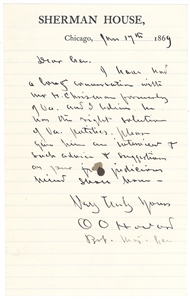 SHERMAN HOUSE,
Chicago, Jan 17th 1869
Dear Gen.
I have had
a long conversation with
Mr H Chrisman formerly
of Va. and I believe he
has the right solution
of Va. politics. Please
give him an interview &
such advice & suggestions
as your judicious
mind shall
Very truly yours
O O Howard
Bvt. Maj. Gen